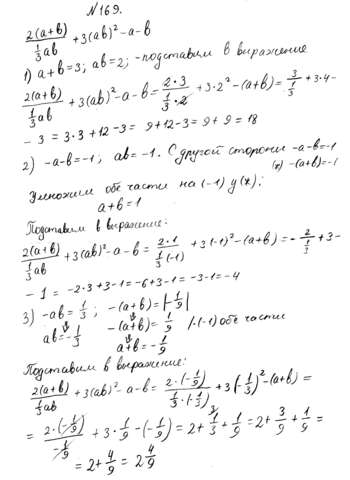 №169.
2(a+b)/(1/3 ab) + 3(ab)² - a - b
1) a+b=3; ab=2; - подставим в выражение
2(a+b)/(1/3 ab) + 3(ab)² - a - b = 2·3/(1/3·2) + 3·2² - (a+b) = 3/(1/3) + 3·4 -
- 3 = 3·3+12-3 = 9+12-3 = 9+9 = 18
2) -a-b=-1; ab=-1. С другой стороны -a-b=-1
(*) -(a+b)=-1
Умножим обе части на (-1) у (*):
a+b=1
Подставим в выражение:
2(a+b)/(1/3 ab) + 3(ab)² - a - b = 2·1/(1/3(-1)) + 3(-1)² - (a+b) = - 2/(1/3) + 3 -
- 1 = -2·3+3-1 = -6+3-1 = -3-1 = -4
3) -ab = 1/3; -(a+b) = |-1/9|
ab = -1/3 -(a+b) = 1/9 /·(-1) обе части
a+b = -1/9
Подставим в выражение:
2(a+b)/(1/3 ab) + 3(ab)² - a - b = 2·(-1/9)/(1/3·(-1/3)) + 3(-1/3)² - (a+b) =
= 2·(-1/9)/(-1/9) + 3·1/9 - (-1/9) = 2 + 1/3 + 1/9 = 2 + 3/9 + 1/9 =
= 2 + 4/9 = 2 4/9